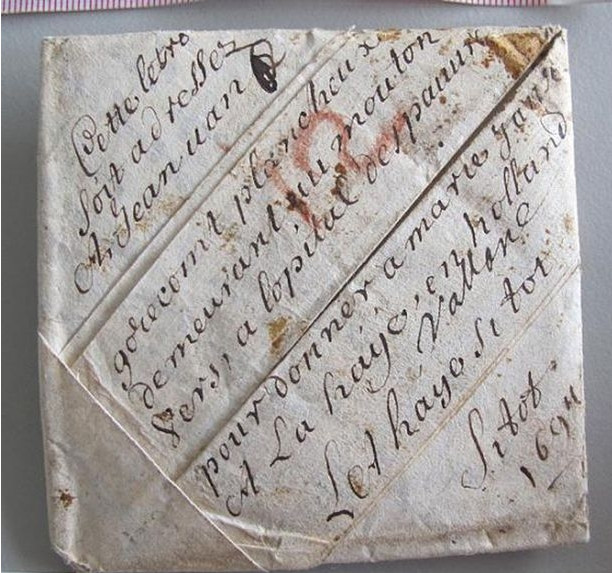 Cette letre
soit adresser
A Jean uan
gorecomt plancheux
demeurant au mouton
Vers, a lopital des pauure
pour donner a marie
A La haÿe, en holland
Vallone
Let haye si tot
Si tot